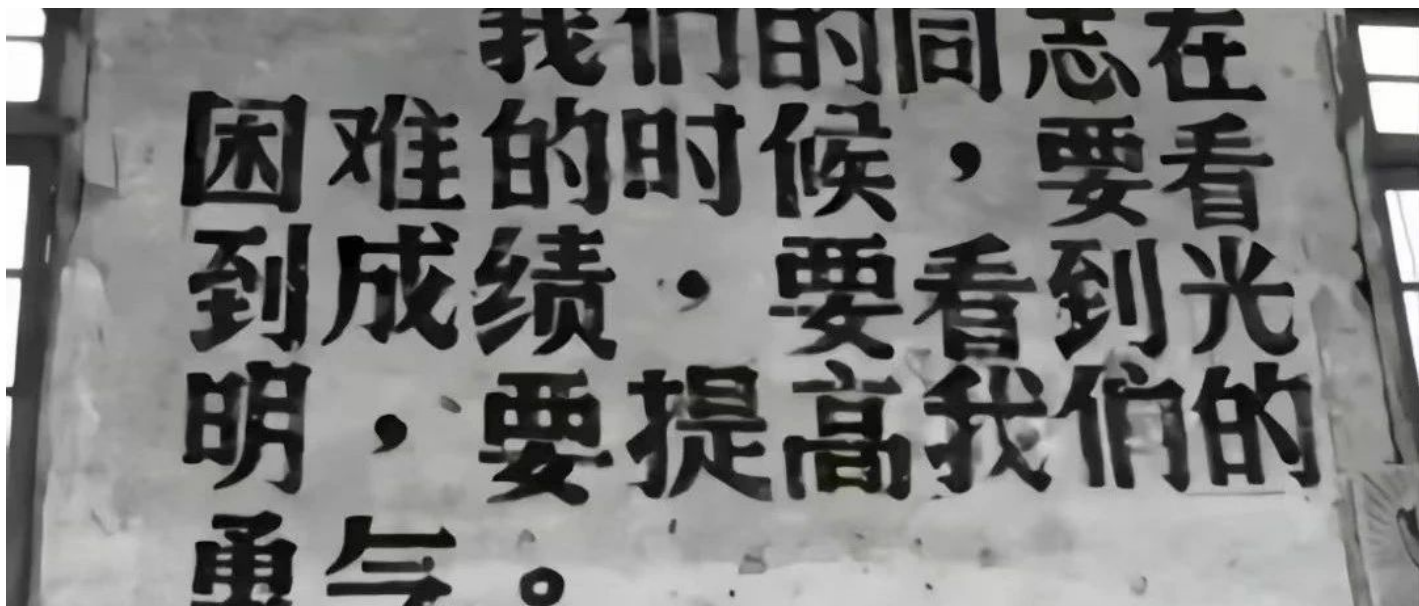 我们的同志在
困难的时候，要看
到成绩，要看到光
明，要提高我们的
勇气。